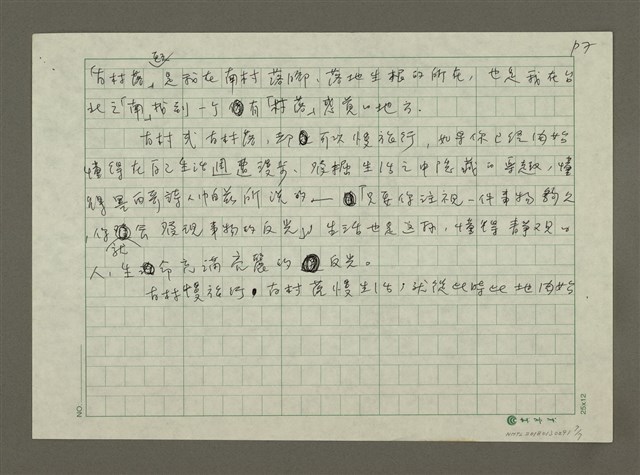 P7
「南村落」是我在南村落腳、落地生根的所在，也是我在台
北之「南」找到一个有「村落」感覺的地方。
南村或南村落，都可以慢旅行，如果你已經開始
懂得在自己生活週遭漫步、發掘生活之中隱藏的樂趣，懂
得墨西哥詩人帕茲所說的—「只要你注視一件事物夠久
，你就會發現事物的反光」，生活也是這樣，懂得靜觀的
人，生命充滿亮麗的反光。
南村慢旅行，南村落慢生活，就從此時此地開始
NO
25x12